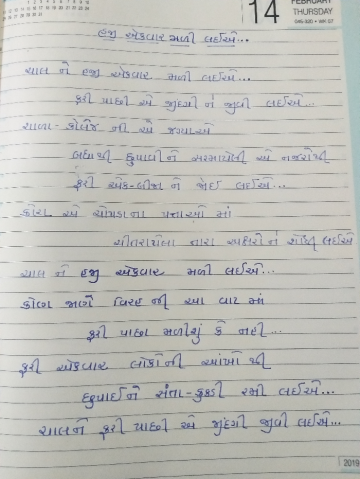 14
FEBRUARY
THURSDAY
045-320 • WK 07
હજી એકવાર મળી લઈએ...
ચાલ ને હજી એકવાર મળી લઈએ...
ફરી પાછી એ જીંદગી ને જીવી લઈએ...
શાળા - કોલેજ ની એ જગ્યાએ
બધાથી છુપાવીને શરમાયેલી એ નજરોથી
ફરી એક-બીજા ને જોઈ લઈએ...
કોરા એ ચોપડાના પન્નાઓ માં
ચીતરાયેલા તારા અક્ષરો ને શોધી લઈએ
ચાલ ને હજી એકવાર મળી લઈએ...
કોણ જાણે વિરહ ની આ વાટ માં
ફરી પાછા મળીશું કે નહીં...
ફરી એકવાર લોકોની આંખો થી
છુપાઈને સંતા-કુકડી રમી લઈએ...
ચાલને ફરી પાછી એ જીંદગી જીવી લઈએ...
2019